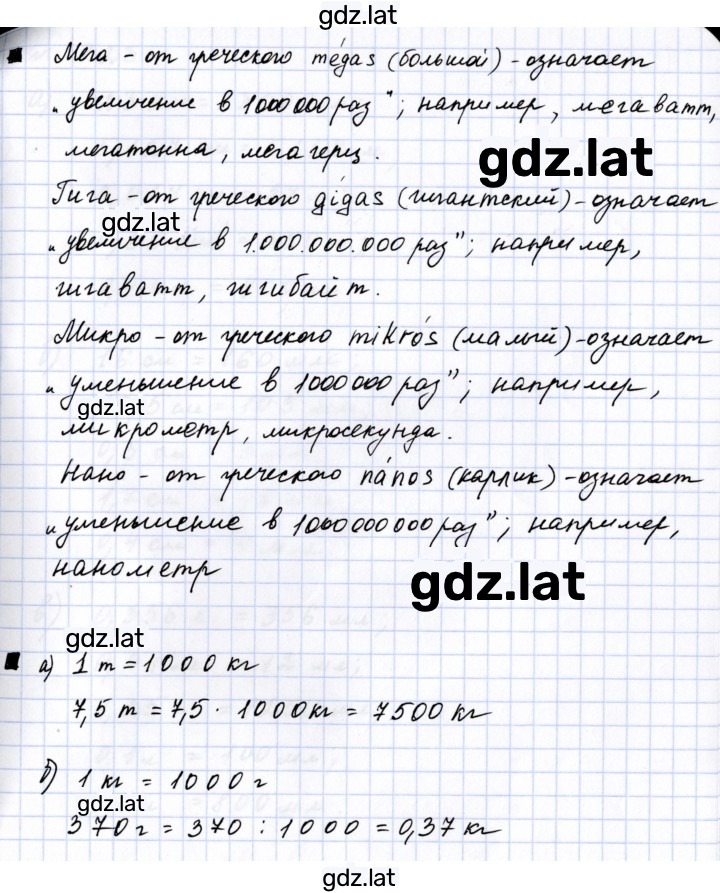 gdz.lat
Мега - от греческого mégas (большой) - означает
„увеличение в 1000000 раз"; например, мегаватт,
мегатонна, мегагерц.
gdz.lat
Гига - от греческого gigas (гигантский) - означает
gdz.lat
„увеличение в 1.000.000.000 раз"; например,
гигаватт, гигибайт.
Микро - от греческого mikrós (малый) - означает
„уменьшение в 1000000 раз"; например,
gdz.lat
микрометр, микросекунда.
Нано - от греческого nános (карлик) - означает
„уменьшение в 1000000000 раз"; например,
нанометр
gdz.lat
gdz.lat
а) 1 т = 1000 кг
7,5 т = 7,5 · 1000 кг = 7500 кг
б) 1 кг = 1000 г
gdz.lat
370 г = 370 : 1000 = 0,37 кг
gdz.lat